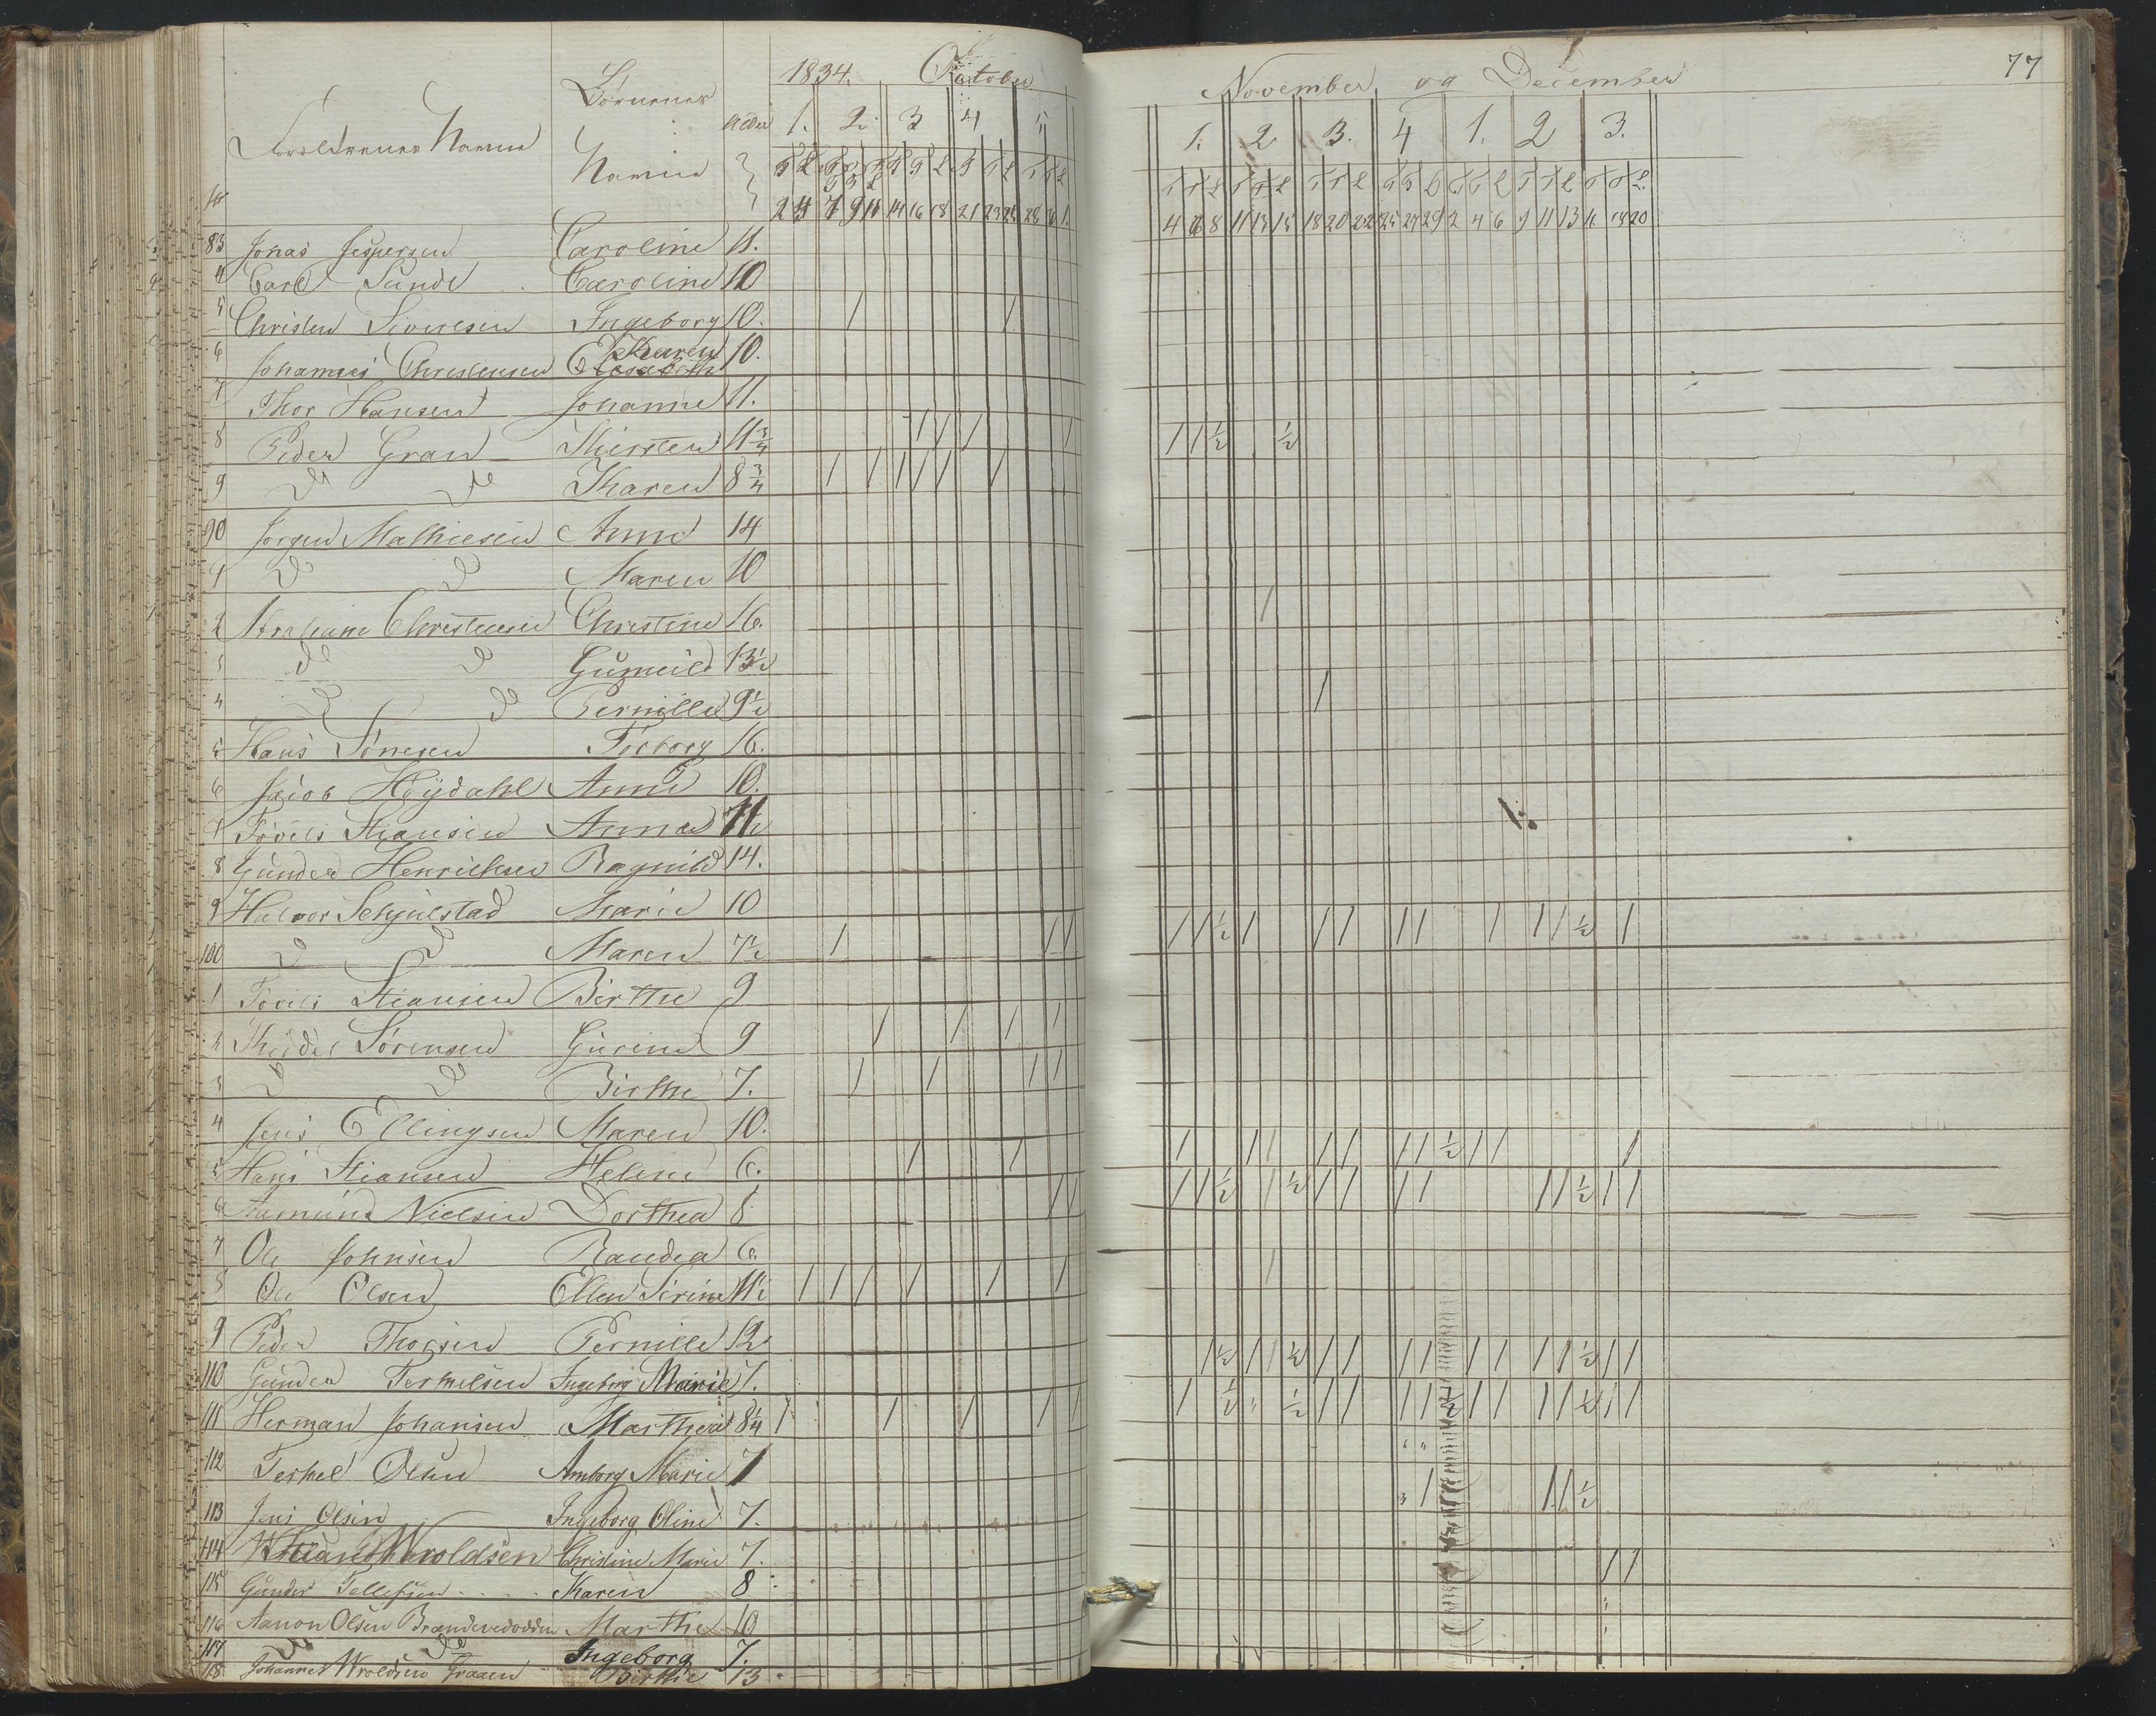 1834. October
Forældrenes Navne Børnenes Navne Alder 1. 2. 3 4 5
2 4 7 9 11 14 16 18 21 23 25 28 1.
83 Jonas Jespersen Caroline 11.
4 Carl Sunde Caroline 10
5 Christen Siversen Ingeborg 10.
6 Johannes Christensen Karen Elisabeth 10.
7 Thor Hansen Johanne 11.
8 Peder Gran Kiersten 11 3/4
9 do do Karen 8 3/4
90 Jørgen Mathiesen Anne 14
1 do do Maren 10
2 Abraham Christensen Christine 16.
3 do do Gunnild 13 1/2
4 do do Pernille 9 1/2
5 Hans Torborg 16.
6 Jacob Høydahl Anne 10.
7 Stiansen Anna
8 Gunder Henrichsen Ragnild 14.
9 Halvor Schjulstad Marie 10
100 do do Maren 7 1/2
1 Stiansen Birthe 9
2 Sørensen Gurine 9
3 do do Birthe 7.
4 Jens Ellingsen Maren 10.
5 Hans Stiansen Helene 6.
6 Aamund Nielsen Dorthea 8
7 Ole Johnsen Randea 6.
8 Ole Olsen Ellen Sirine 11 1/2
9 Peder Thorsen Pernille 12
110 Gunder Terkelsen Ingeborg Marie 7.
111 Herman Johansen Marthea 8 1/4
112 Terkel Olsen Anborg Marie 7
113 Jens Olsen Ingeborg Oline 7.
114 Wroldsen Christine Marie 7.
115 Gunder Tellefsen Karen 8
116 Aanon Olsen Marthe 10
117 do Ingeborg 7.
118 Johannes Wroldsen Graaen Birthe 13
77
November og December
1. 2 3. 4 1. 2 3.
4 6 8 11 13 15 18 20 22 25 27 29 2 4 6 9 11 13 16 18 20